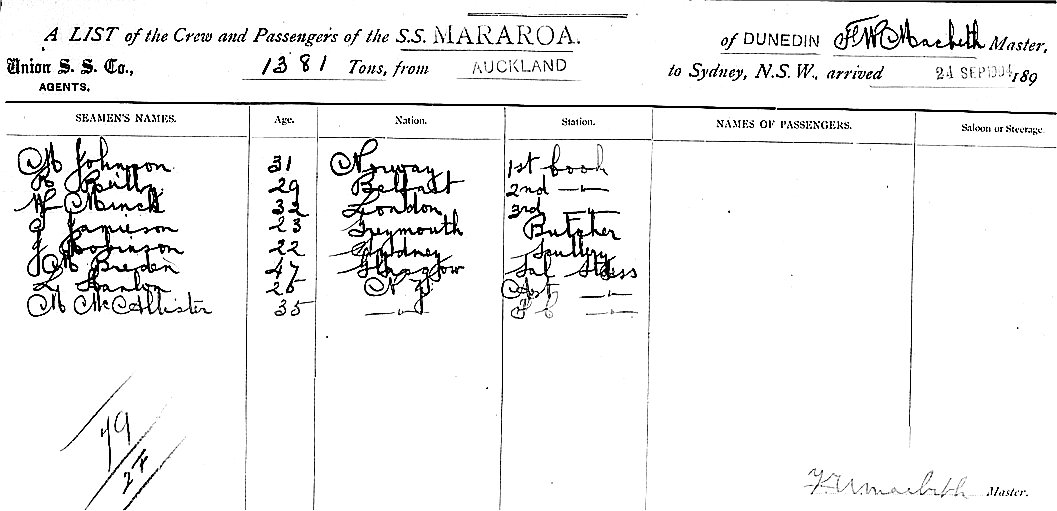 A LIST of the Crew and Passengers of the S.S. MARAROA. of DUNEDIN F W Macbeth Master,
Union S. S. Co., 1381 Tons, from AUCKLAND to Sydney, N.S.W., arrived 24 SEP 189
AGENTS.
SEAMEN'S NAMES. Age. Nation. Station. NAMES OF PASSENGERS. Saloon or Steerage
M Johnson 31 Norway 1st Cook
B Reilly 29 Belfast 2nd —"—
W 32 London 3rd —"—
J Jamieson 23 Greymouth Butcher
J Robinson 22 Sydney Scullery
J M Breden 47 Glasgow Sal Stdess
L Hanlon 26 N Z Asst —"—
M McAllister 35 —"— F C —"—
79
27
F W Macbeth Master.